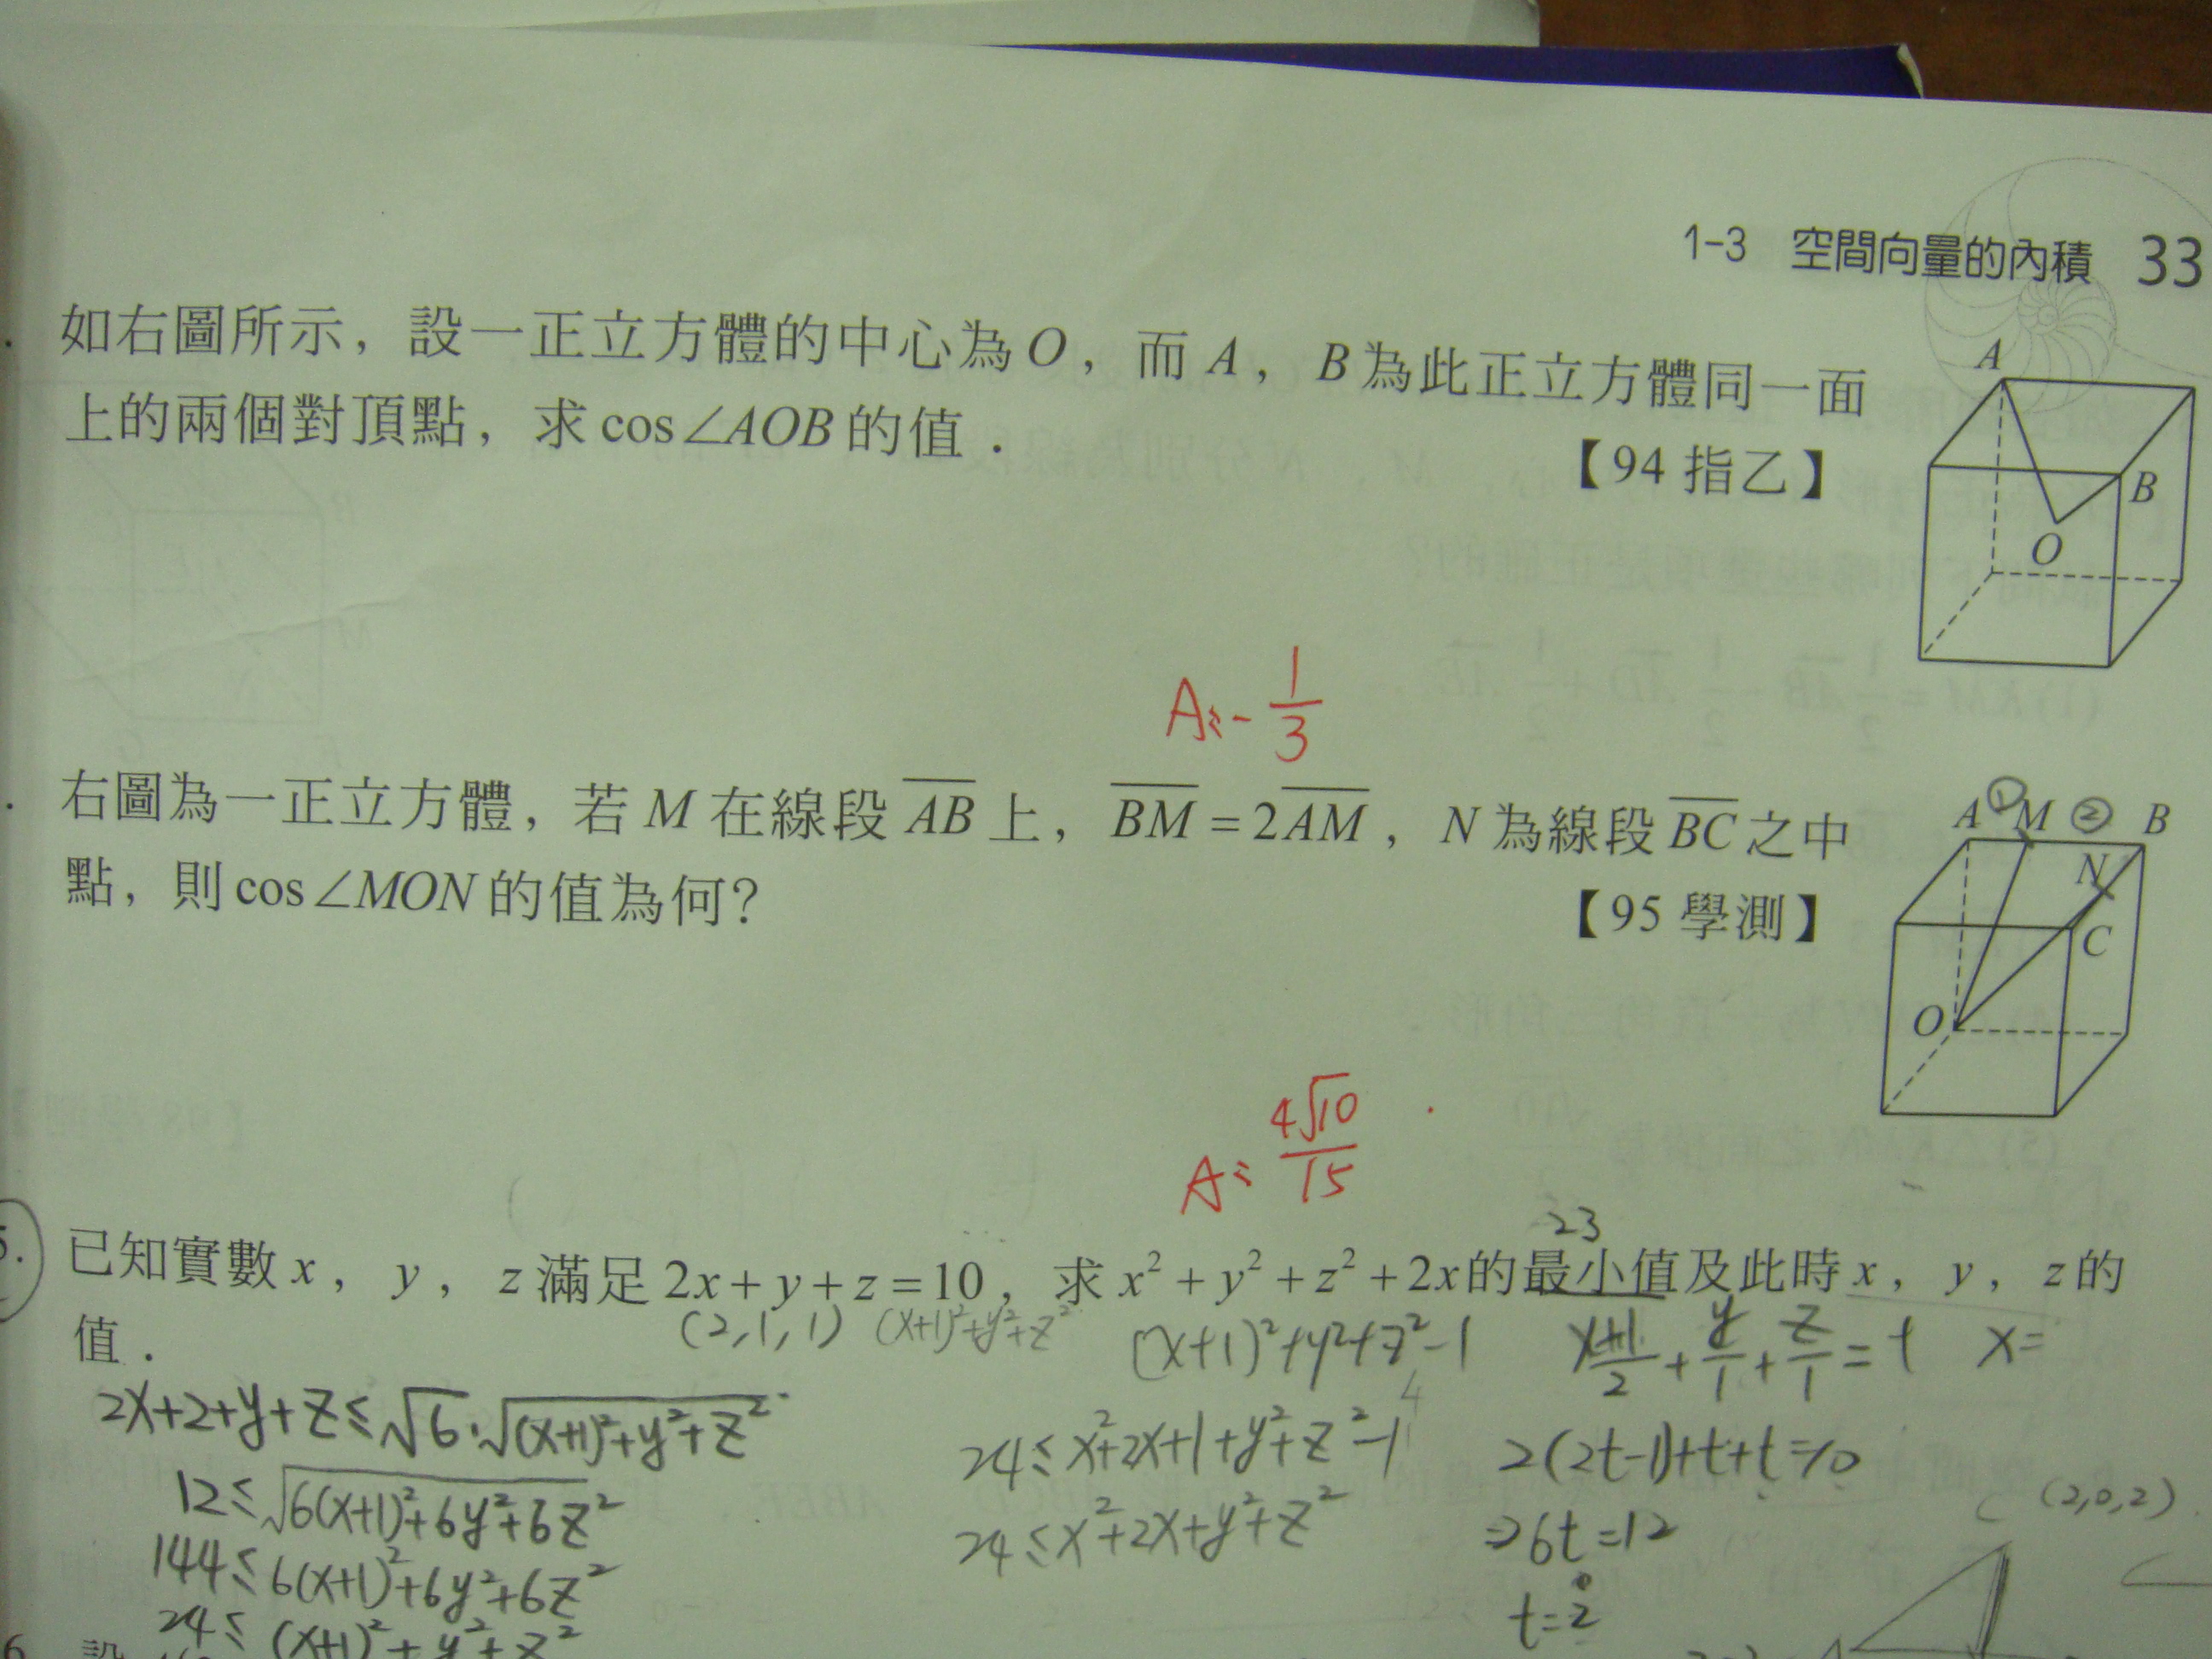 1-3 空間向量的內積 33
. 如右圖所示，設一正立方體的中心為O，而A，B為此正立方體同一面
上的兩個對頂點，求cos∠AOB的值．
【94指乙】
A
B
O
A: -1/3
. 右圖為一正立方體，若M在線段AB上，BM = 2AM，N為線段BC之中
點，則cos∠MON的值為何？
【95學測】
A ① M ② B
N
C
O
A: 4√10/15
23
5. 已知實數x，y，z滿足2x+y+z=10，求x²+y²+z²+2x的最小值及此時x，y，z的
值．
(2,1,1) (x+1)²+y²+z²
(x+1)²+y²+z²-1
(x+1)/2 + y/1 + z/1 = t x=
2x+2+y+z≤√6·√(x+1)²+y²+z²
12≤√6(x+1)²+6y²+6z²
144≤6(x+1)²+6y²+6z²
24≤(x+1)²+y²+z²
24≤x²+2x+1+y²+z²-1
24≤x²+2x+y²+z²
2(2t-1)+t+t=10
⇒6t=12
t=2
C (2,0,2)
6 設